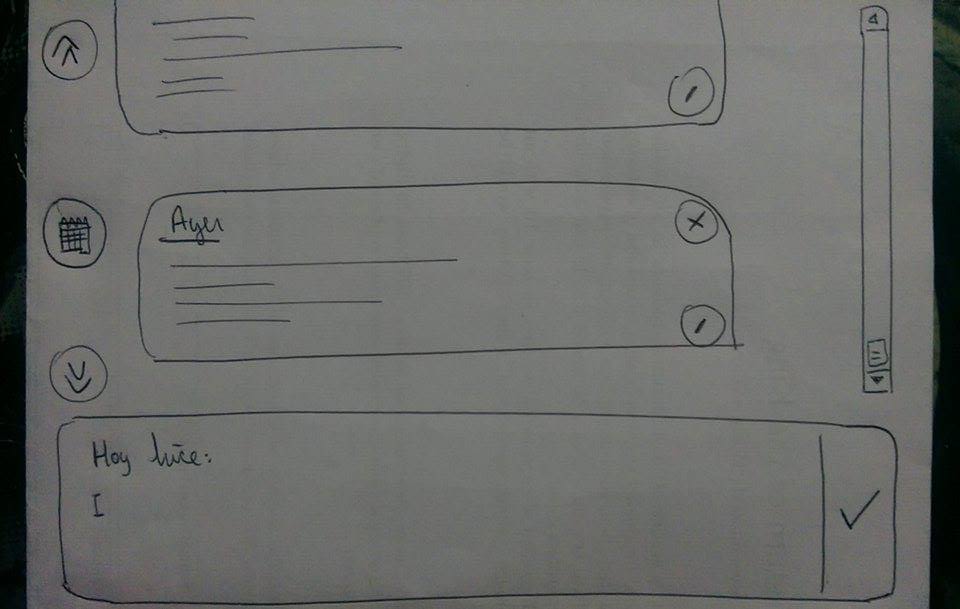 Ayer
Hoy hice: